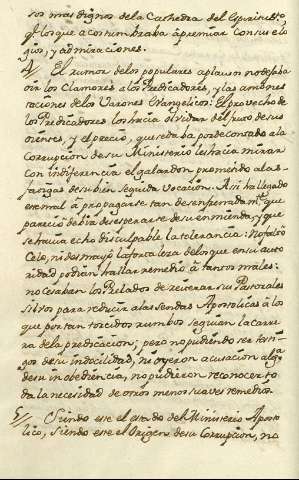 sos mas dignos de la Cathedra del Espiritu Sto
q̃ los que acostumbraba â premiar con sus elo
gios, y admiraciones.
4// El rumor de los populares aplausos no dejaba
oir los clamores â los Predicadores, y las amones
taciones de los Varones Evangelicos: El provecho de
los Predicadores los hacia olvidar del fruto de sus
oientes, y el precio, que se daba por de contado â la
Corrupcion de su Ministerio les hacia mirar
con indiferencia el galardon prometido â las
fatigas de su bien seguida vocacion. Asi ha llegado
este mal â propagarse tan desenfrenadamte. que
parecio debia desesperarse de su enmienda, y que
se havia echo disculpable la tolerancia: No falto
Celo, ni desmayò la fortaleza de los que en su auto
ridad podian hallar remedio â tantos males:
no cesaban los Prelados de reiterar sus Pastorales
silvos para reducir â las sendas Apostolicas â los
que por tan torcidos rumbos seguian la carre
ra de la predicacion; pero no pudiendo ser testi
gos de su indocilidad, ni oyeron acusacion algª
de su inobediencia, no pudieron reconocer to
da la necesidad de otros menos suaves remedios.
5// Siendo ese el estado del Ministerio Aposto
lico, siendo ese el Origen de su Corrupcion, no